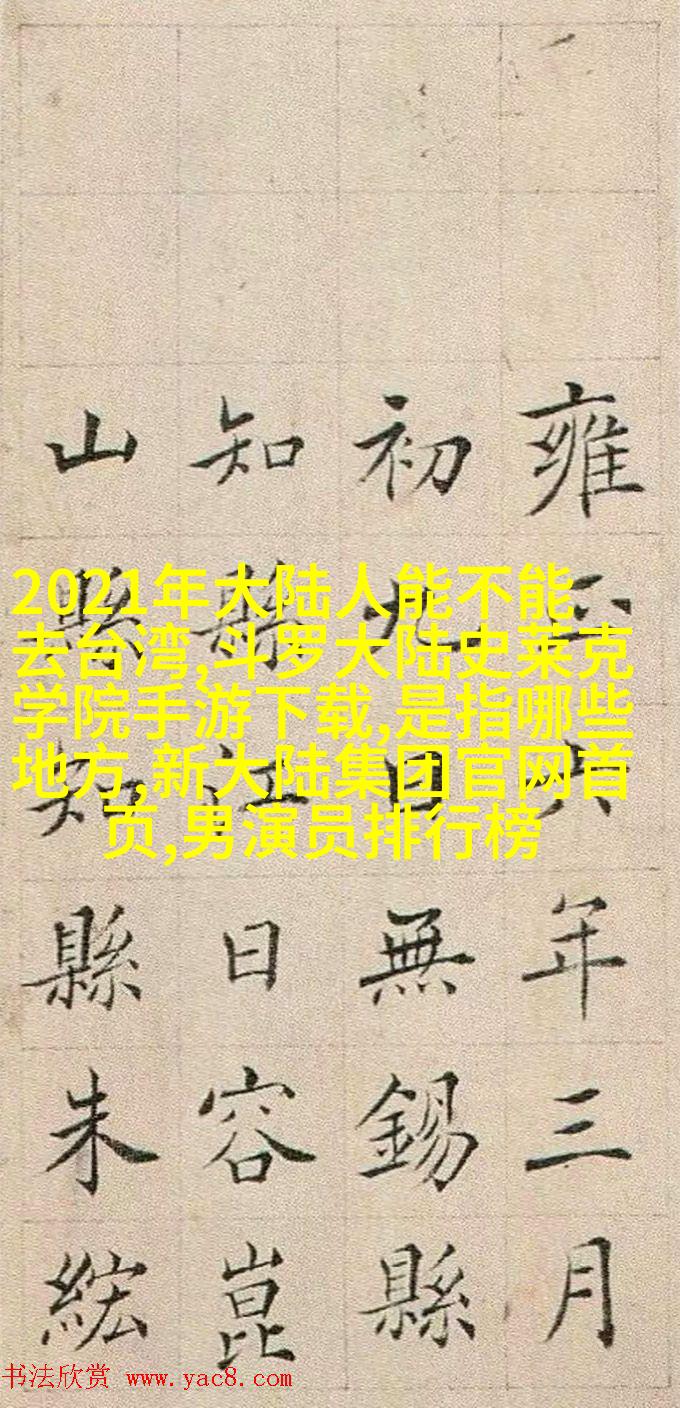 雍正六年三月
初九日無錫縣
知縣江日容崑
山縣知縣朱
2021年大陆人能不能
去台湾,斗罗大陆史莱克
学院手游下载,是指哪些
地方,新大陆集团官网首
页,男演员排行榜
书法欣赏 www.yac8.com